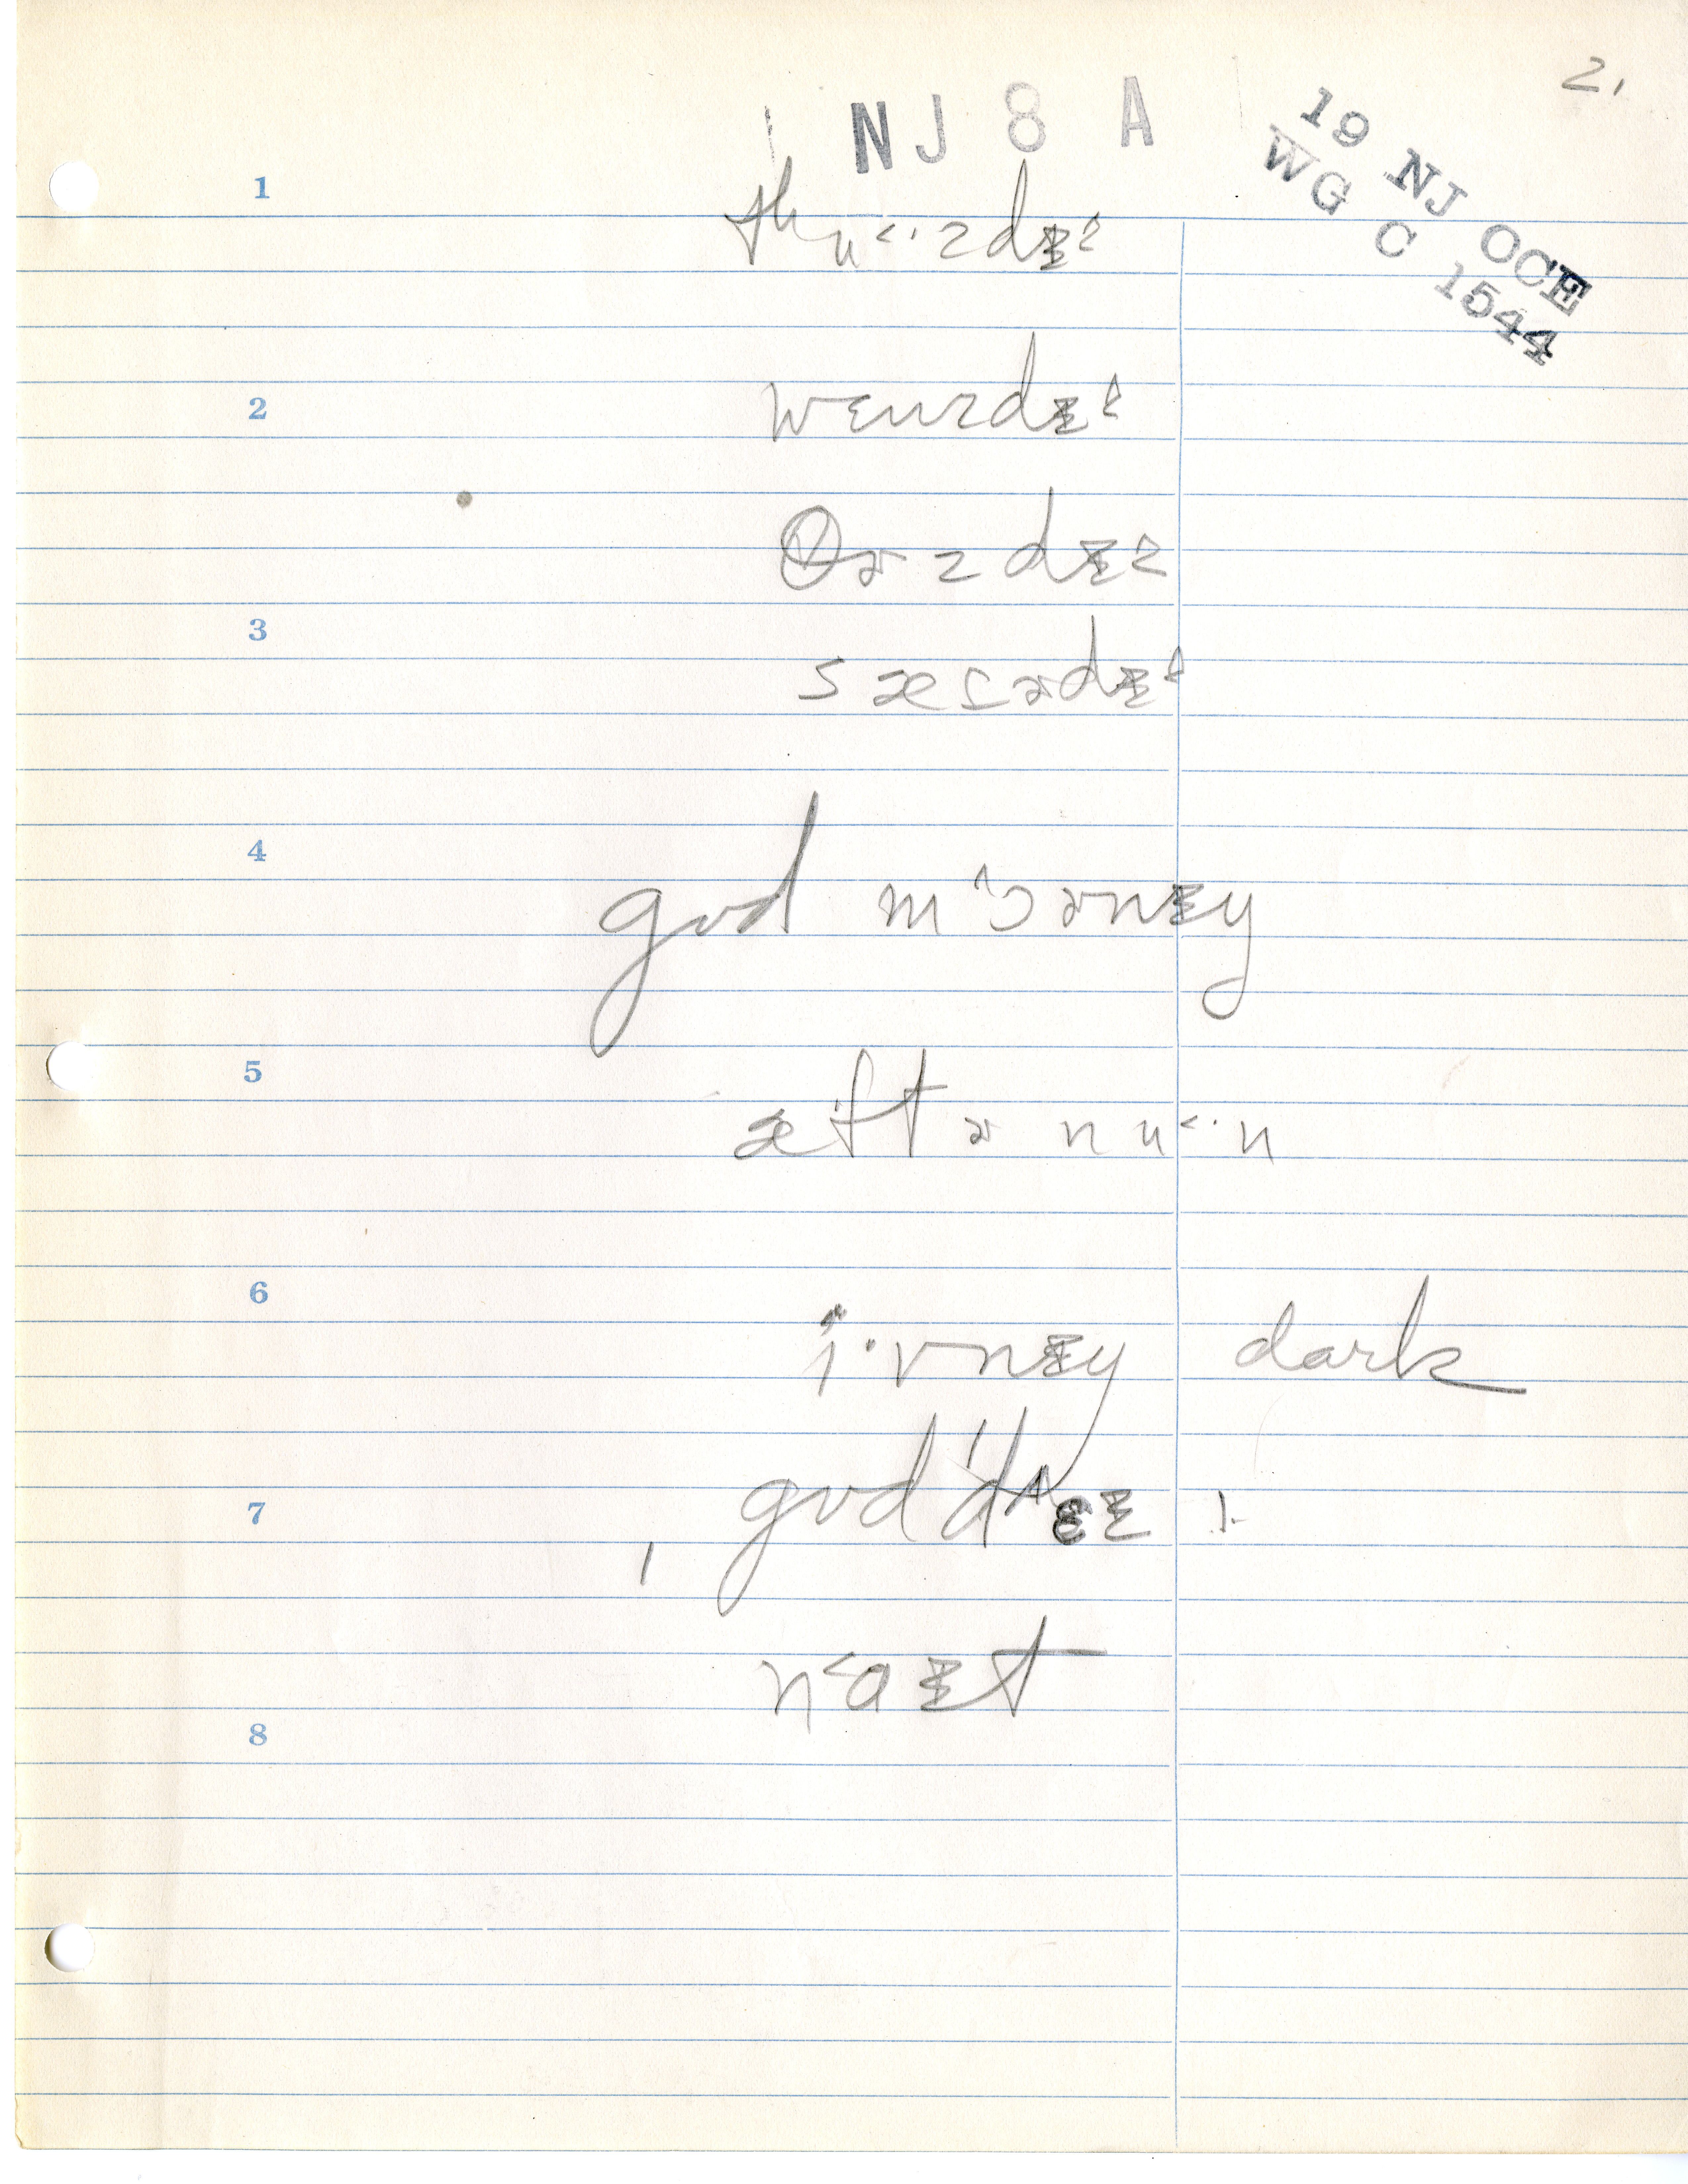 2.
NJ 8 A
19 NJ OCE
WG C 1544
1
tʰu˂·zdɪ^
2
wɛnzdɪ^
θɚzdɪ^
3
sæɾɚdɪ^
4
gʊd m^ɔɚnɪŋ
5
æftɚ nu˂·n
6
i·vnɪŋ dark
7
gʊd 'd
n˂aɪt
8